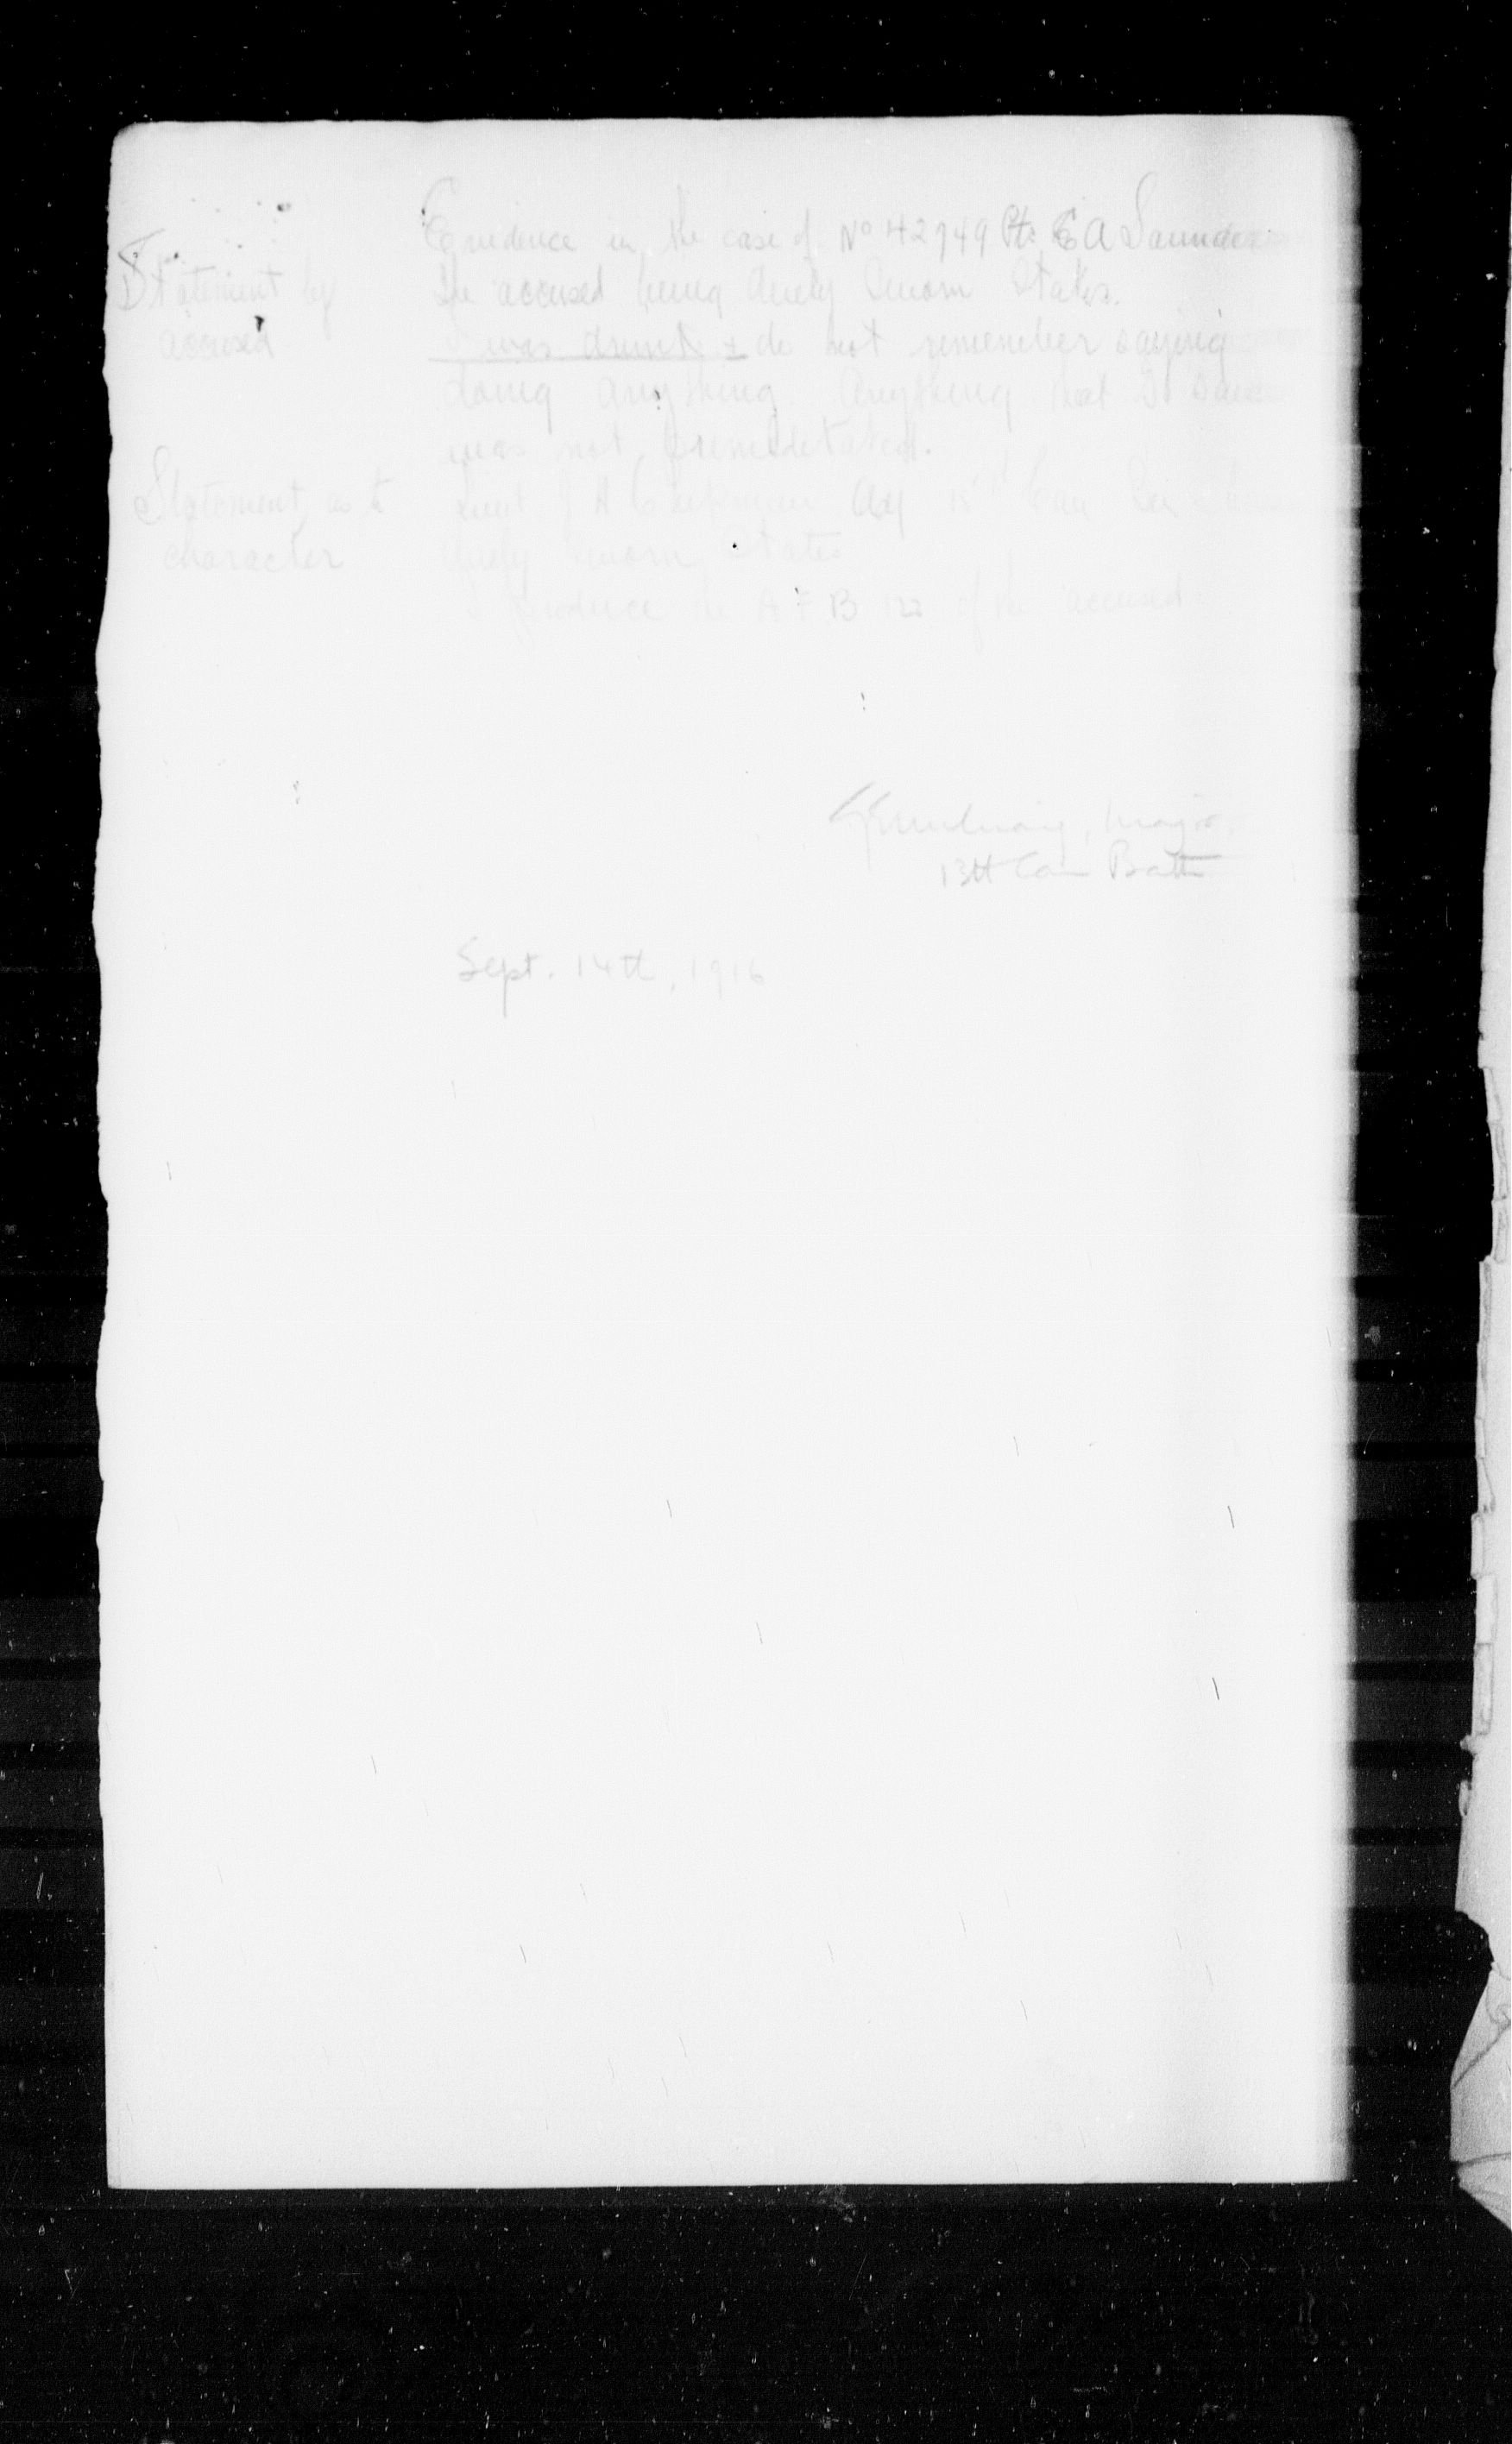 Evidence in the case of No 42949 Pte E A Saunders
Statement by The accused being duly sworn States.
accused I was drunk & do not remember saying
doing anything. Anything that I
was not premeditated.
Statement as to Lieut
character duly sworn States
I produce the A F B 122 of the accused
Major
13th Can Battn
Sept. 14th, 1916